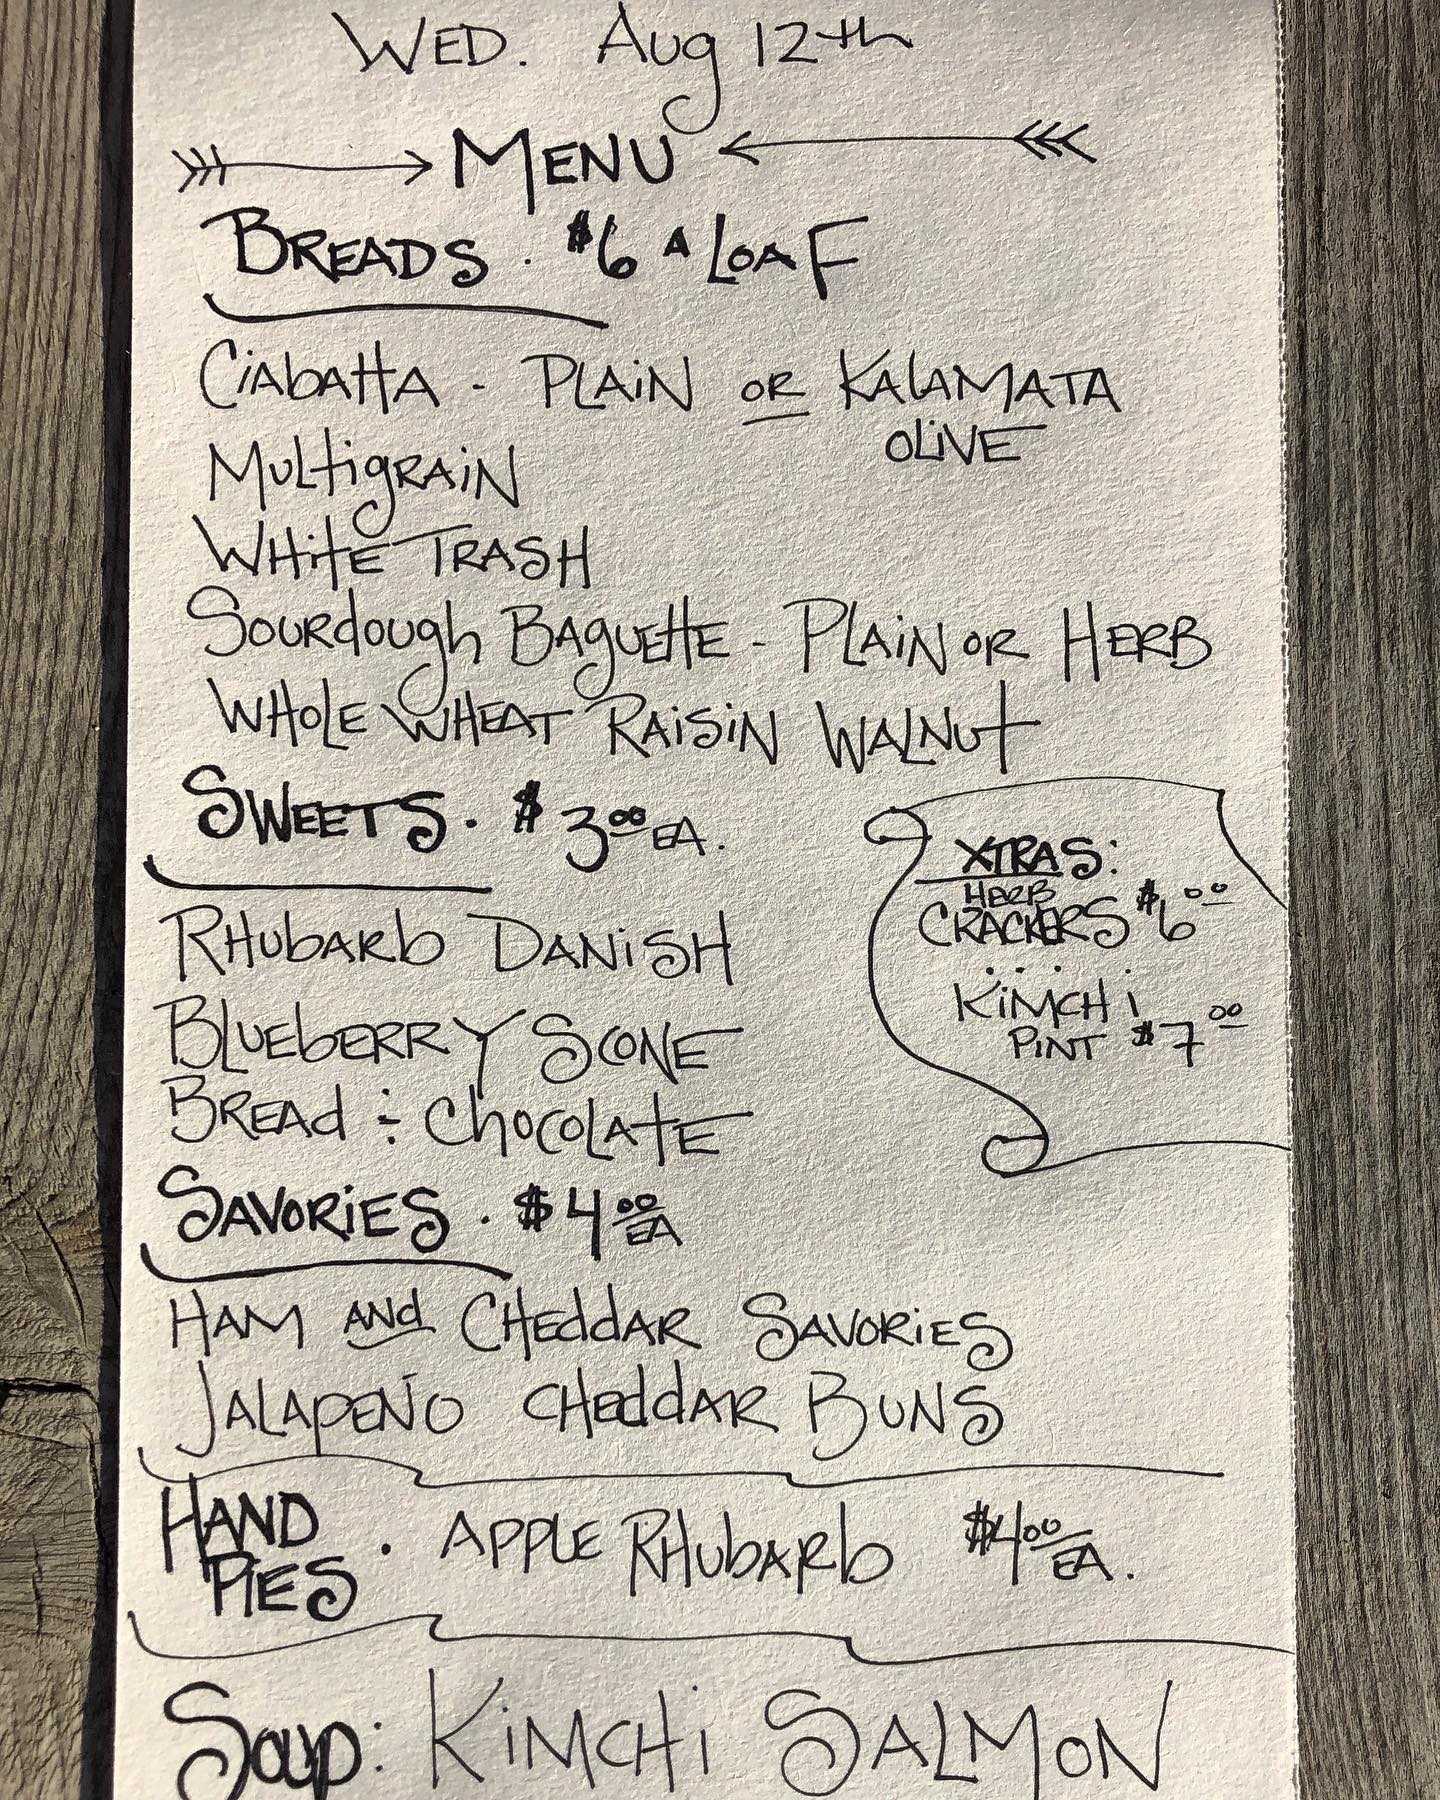 WED. Aug 12th
MENU
BREADS. $6 A LOAF
CIABATTA - PLAIN OR KALAMATA
OLIVE
MULTIGRAIN
WHITE TRASH
SOURDOUGH BAGUETTE - PLAIN OR HERB
WHOLE WHEAT RAISIN WALNUT
SWEETS. $3.00 EA.
RHUBARB DANISH
BLUEBERRY SCONE
BREAD & CHOCOLATE
XTRAS:
HERB
CRACKERS $6.00
...
KIMCHI
PINT $7.00
SAVORIES. $4.00 EA
HAM AND CHEDDAR SAVORIES
JALAPEÑO CHEDDAR BUNS
HAND
PIES . APPLE RHUBARB $4.00 EA.
SOUP: KIMCHI SALMON